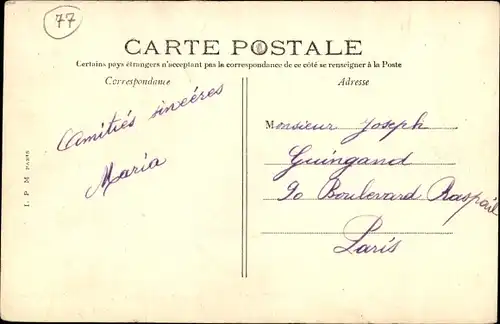 77
CARTE POSTALE
Certains pays étrangers n'acceptant pas la correspondance de ce côté se renseigner à la Poste
Correspondance
Adresse
Amitiés sincères
Maria
Monsieur Joseph
Guingand
90 Boulevard Raspail
Paris
I. P. M PARIS